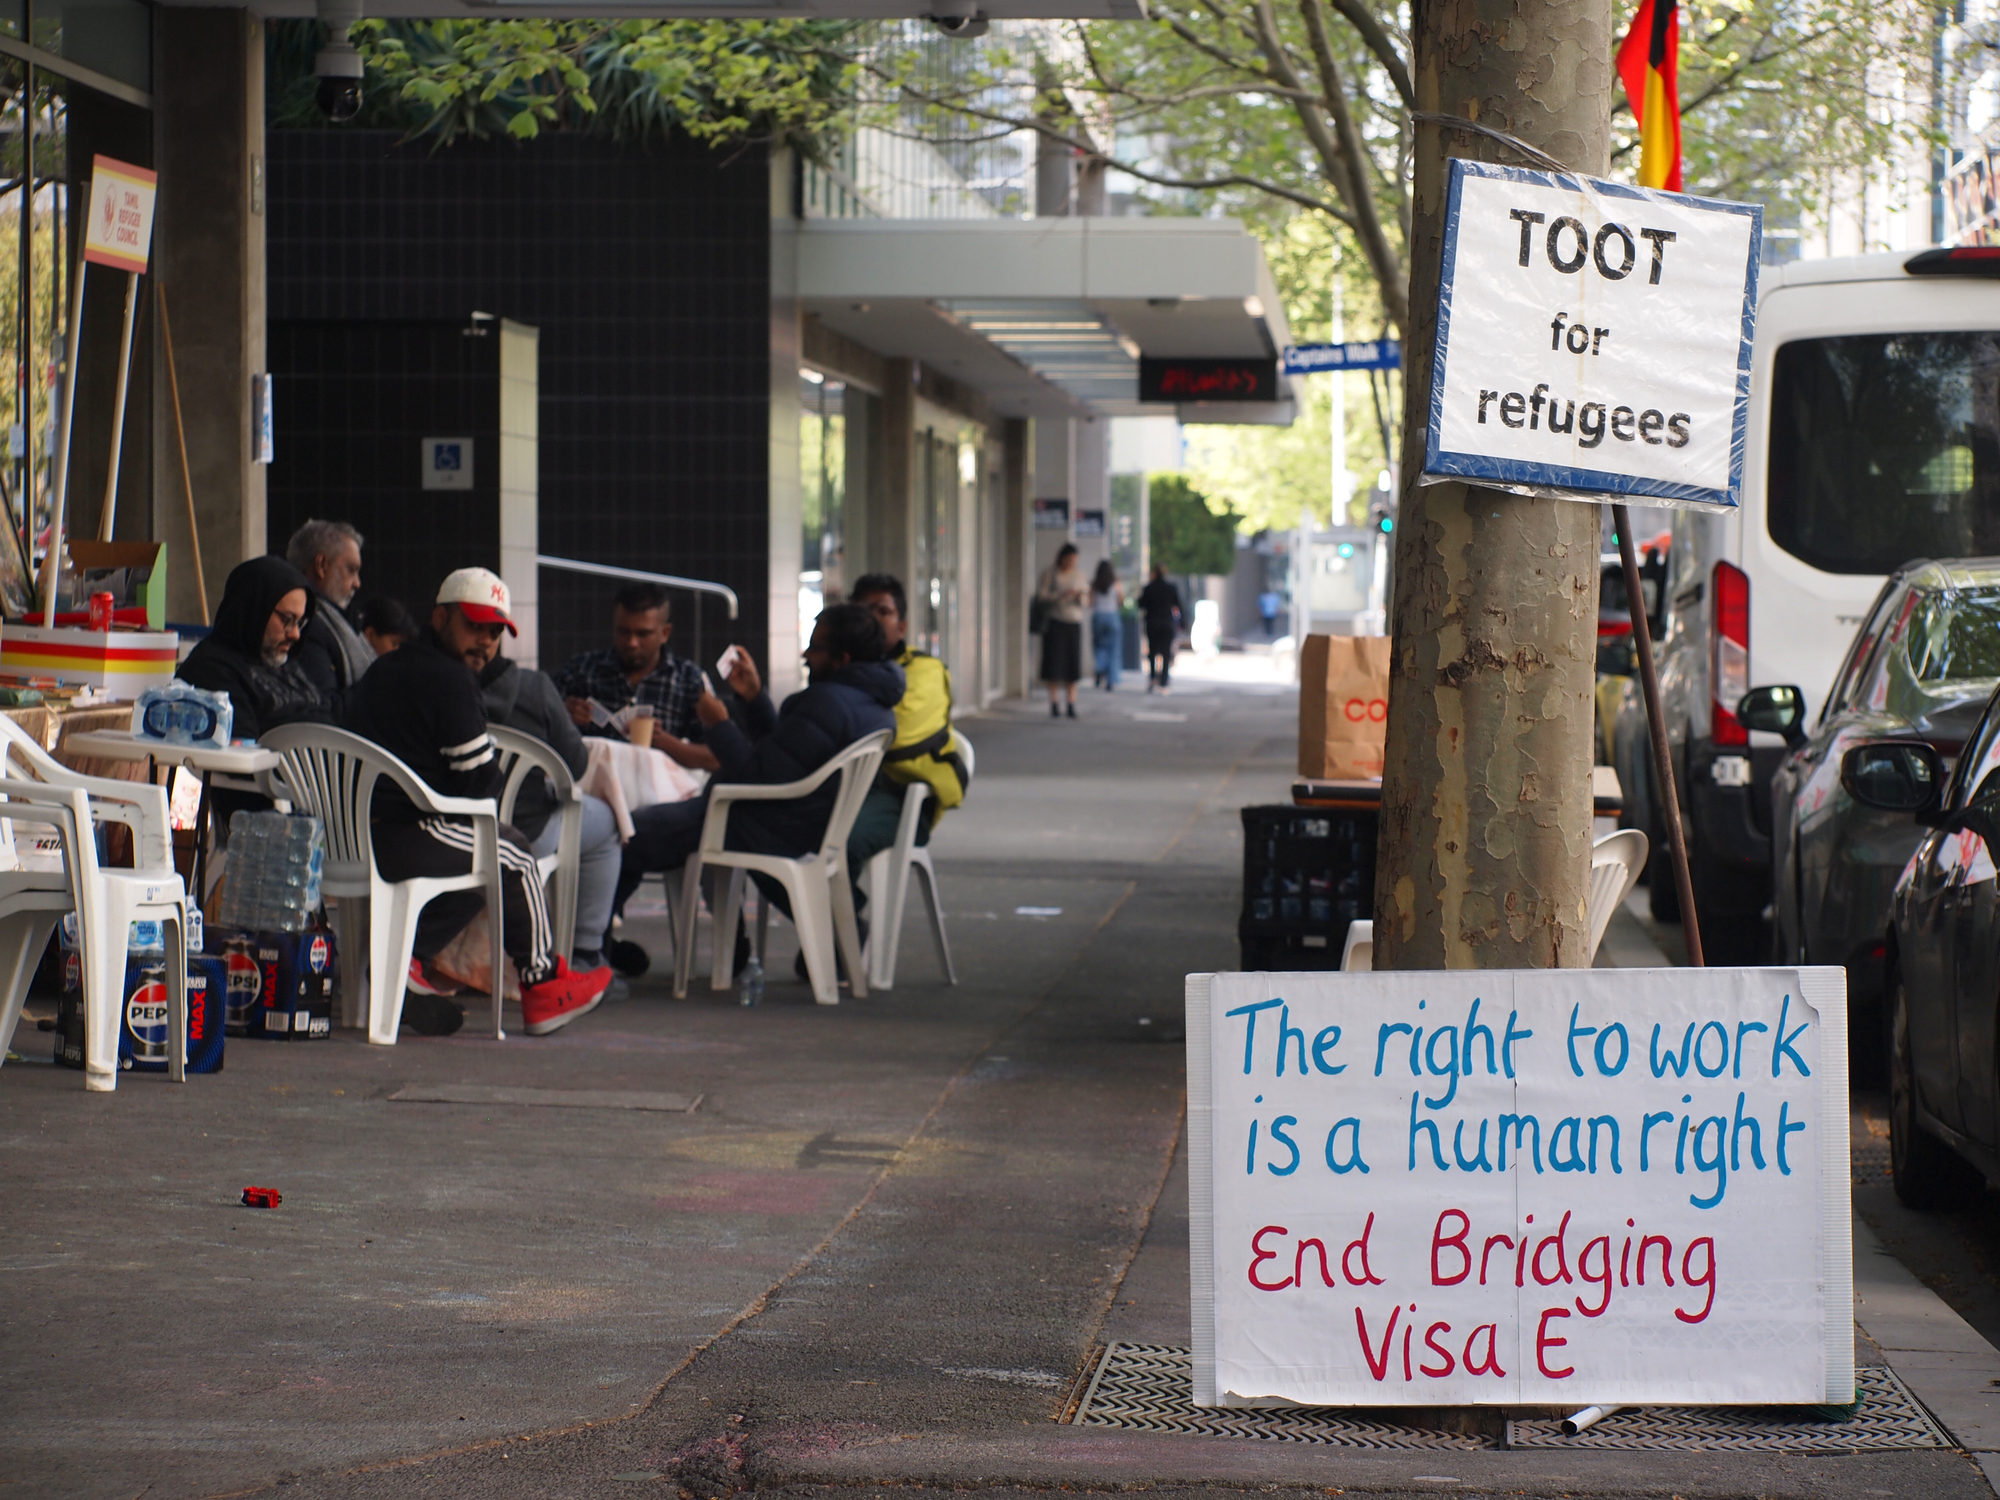 TAMIL
REFUGEE
COUNCIL
Captains Walk
TOOT
for
refugees
CO
PEPSI
MAX
PEPSI
PEP
MAX
The right to work
is a human right
End Bridging
Visa E